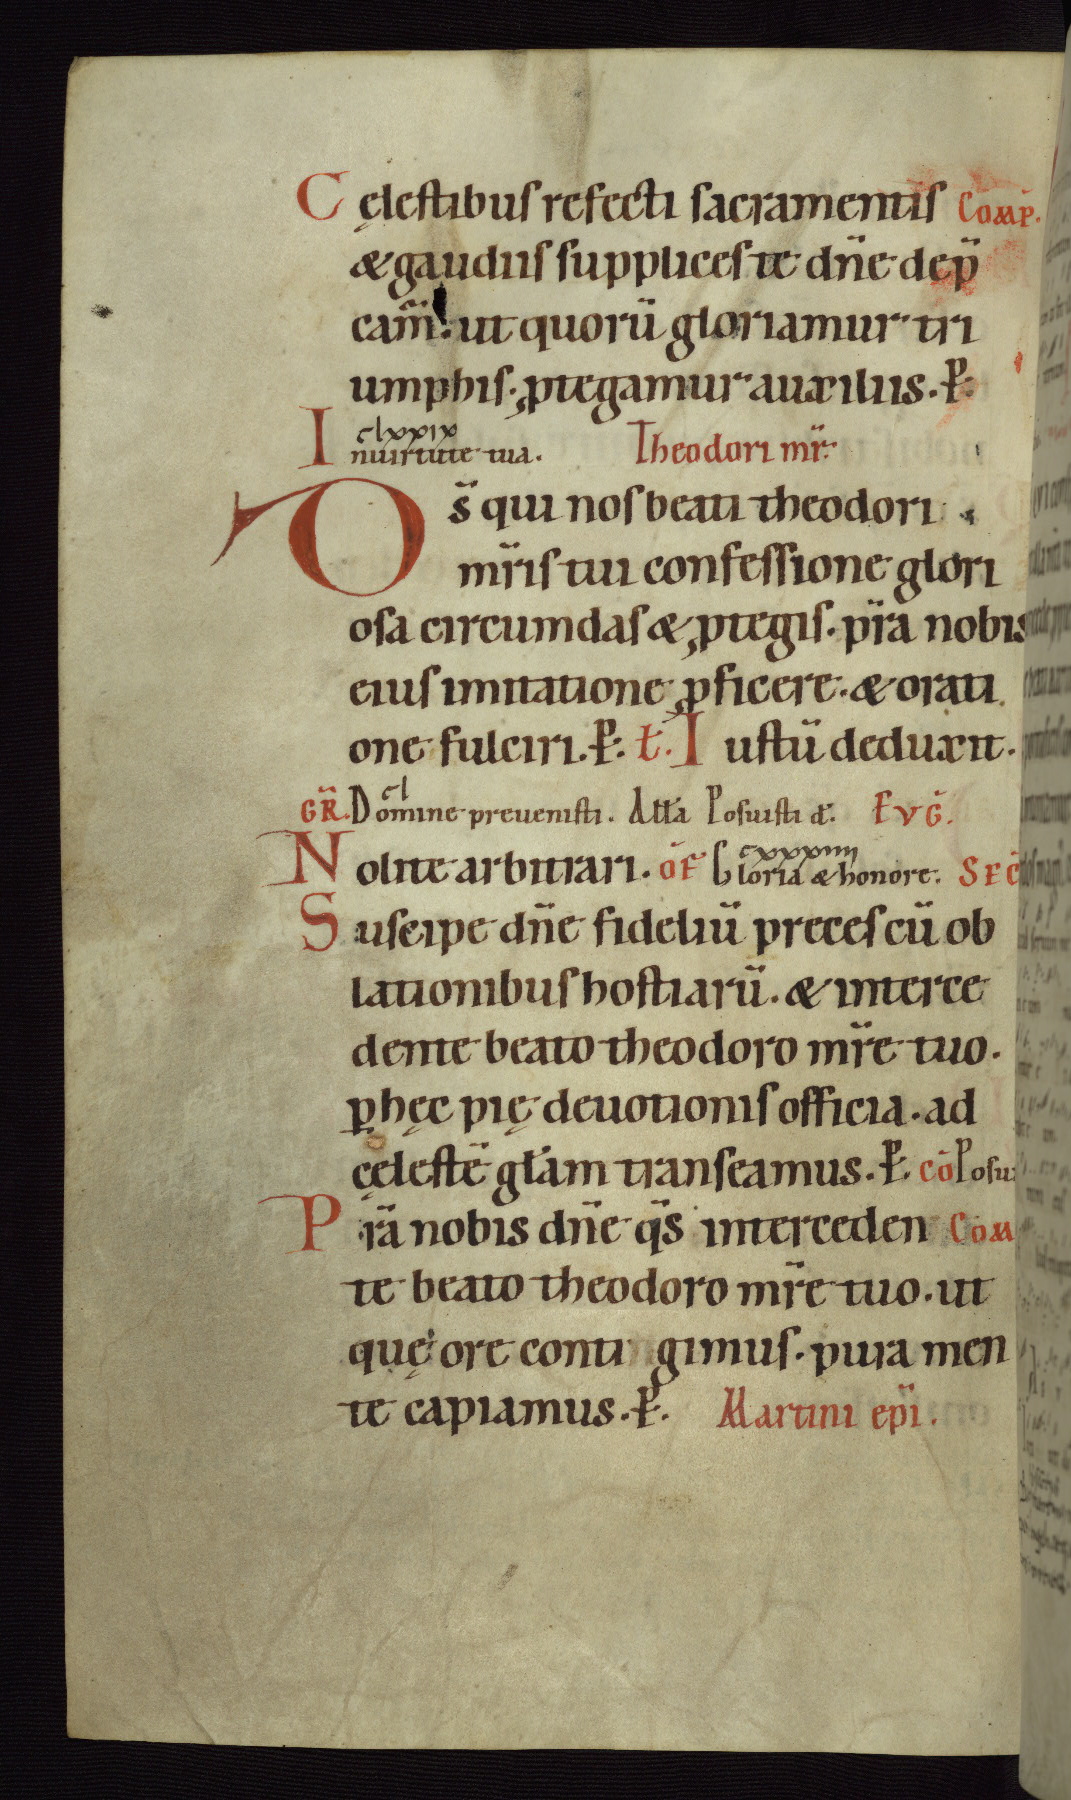 Cęlestibus refecti sacramentis COMP̄.
& gaudiis supplices te dn̄e dep̄
cam̄. ut quorū gloriamur tri
umphis. ꝓtegamur auxiliis. P̱.
clxxix
In uirtute tua. Theodori mr̄.
Ds̄ qui nos beati theodori
mr̄is tui confessione glori
osa circumdas & ꝓtegis. pr̄a nobis
eius imitatione ꝓficere. & orati
one fulciri. P̱. ƚ. Iustū deduxit.
cl
GR̄. Domine preuenisti. Allā Posuisti d̄. EVḠ.
cxxxiiii
Nolite arbitrari. ōF Gloria & honore. SEC̄
Suscipe dn̄e fideliū preces cū ob
lationibus hostiarū. & interce
dente beato theodoro mr̄e tuo.
ꝑ hęc pię deuotionis officia. ad
cęlestē gƚam transeamus. P̱. cō Posui
Pr̄a nobis dn̄e qs̄ interceden COM
te beato theodoro mr̄e tuo. ut
quę ore contigimus. pura men
te capiamus. P̱. Martini ep̄i.